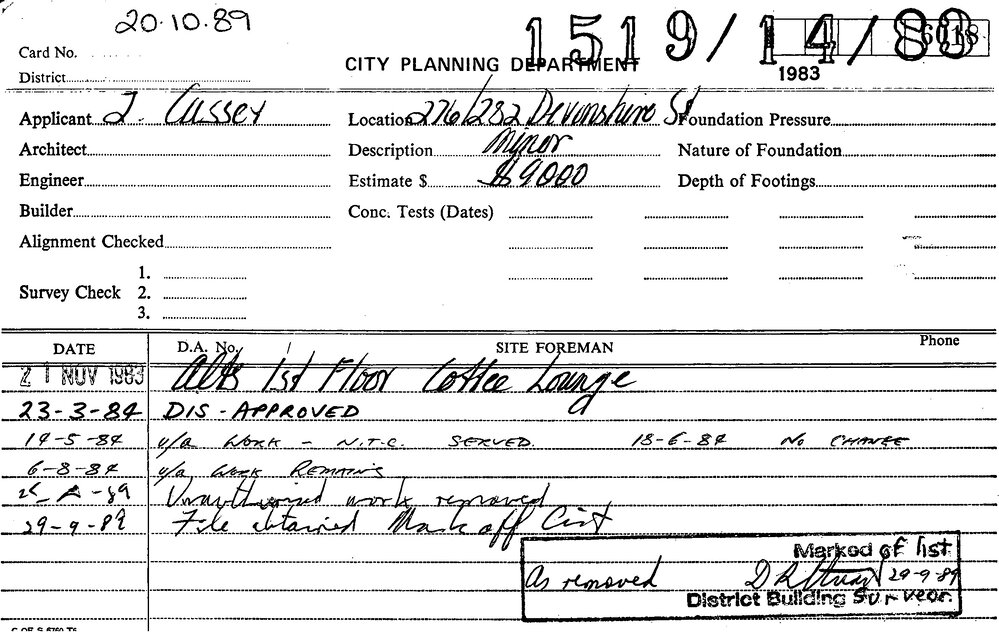 20.10.89
1519/14/83
6018
Card No.
CITY PLANNING DEPARTMENT
1983
District
Applicant J. Cassey Location 276/282 Devonshire St Foundation Pressure
Architect Description Minor Nature of Foundation
Engineer Estimate $ $9000 Depth of Footings
Builder Conc. Tests (Dates)
Alignment Checked
1.
Survey Check 2.
3.
DATE D.A. No. SITE FOREMAN Phone
21 NOV 1983 Alts 1st Floor Coffee Lounge
23-3-84 DIS-APPROVED
14-5-84 u/a WORK - N.T.C. SERVED. 18-6-84 NO CHANGE
6-8-84 u/a WORK REMAINS
-89 Unauthorised work removed
29-9-89 File obtained Mark off List
Marked of list
As removed 29-9-89
District Building Surveor.